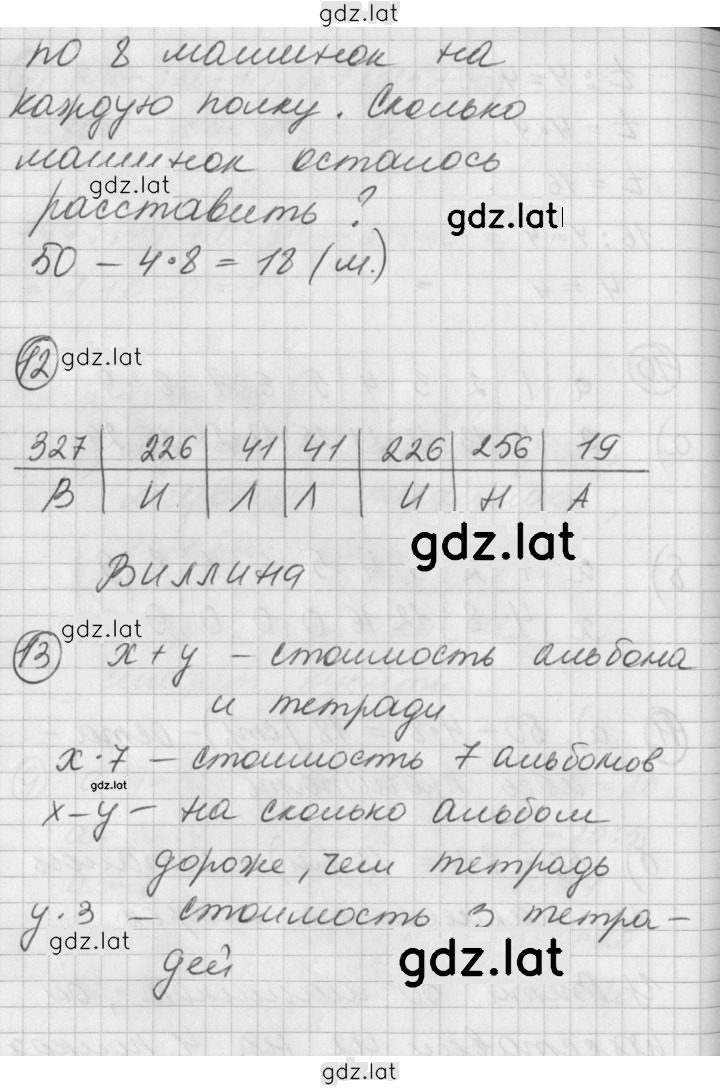 gdz.lat
по 8 машинок на
каждую полку. Сколько
машинок осталось
gdz.lat
расставить?
gdz.lat
50 - 4·8 = 18 (м.)
12 gdz.lat
327 | 226 | 41 | 41 | 226 | 256 | 19
В | И | Л | Л | И | Н | А
gdz.lat
Виллина
gdz.lat
13 x + y - стоимость альбома
и тетради
x·7 - стоимость 7 альбомов
gdz.lat
x-y - на сколько альбом
дороже, чем тетрадь
y·3 - стоимость 3 тетра-
gdz.lat
дей
gdz.lat
gdz.lat